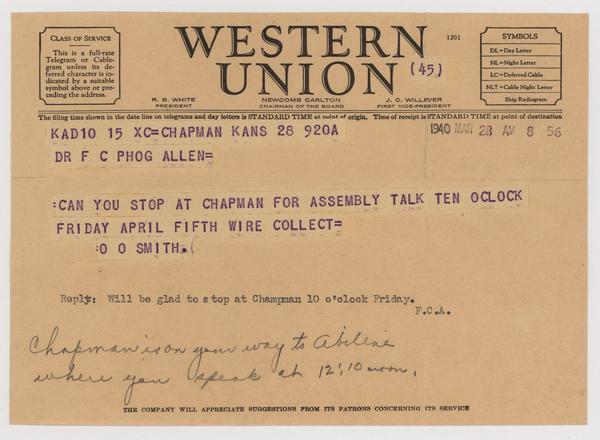 CLASS OF SERVICE
This is a full-rate
Telegram or Cable-
gram unless its de-
ferred character is
indicated by a suitable
symbol above or pre-
ceding the address.
WESTERN
UNION
(45)
1201
SYMBOLS
DL=Day Letter
NL=Night Letter
LC=Deferred Cable
NLT=Cable Night Letter
Ship Radiogram
R. B. WHITE
PRESIDENT
NEWCOMB CARLTON
CHAIRMAN OF THE BOARD
J. C. WILLEVER
FIRST VICE-PRESIDENT
The filing time shown in the date line on telegrams and day letters is STANDARD TIME at point of origin. Time of receipt is STANDARD TIME at point of destination
KAD10 15 XC=CHAPMAN KANS 28 920A
1940 MAR 28 AM 8 56
DR F C PHOG ALLEN=
:CAN YOU STOP AT CHAPMAN FOR ASSEMBLY TALK TEN OCLOCK
FRIDAY APRIL FIFTH WIRE COLLECT=
:O O SMITH.(
Reply: Will be glad to stop at Champman 10 o'clock Friday.
F.C.A.
Chapman is on your way to Abilene
where you speak at 12:10 noon.
THE COMPANY WILL APPRECIATE SUGGESTIONS FROM ITS PATRONS CONCERNING ITS SERVICE